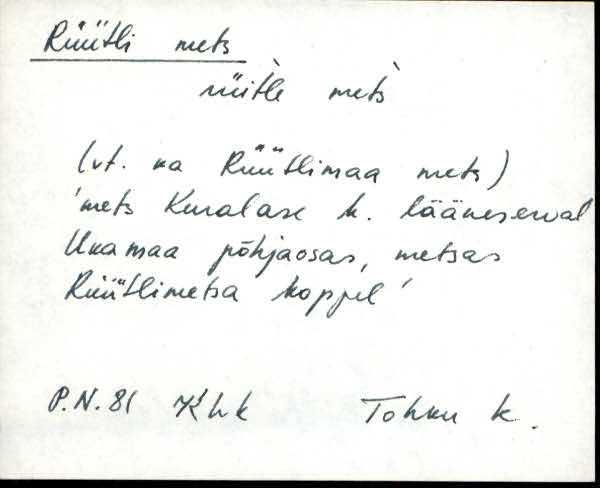 Rüütli mets
rüitle mets
(vt. ka Rüütlimaa mets)
'mets Kuralase k. lääneserval
Ukamaa põhjaosas, metsas
Rüütlimetsa koppel'
P.N. 81 Khk Tohku k.